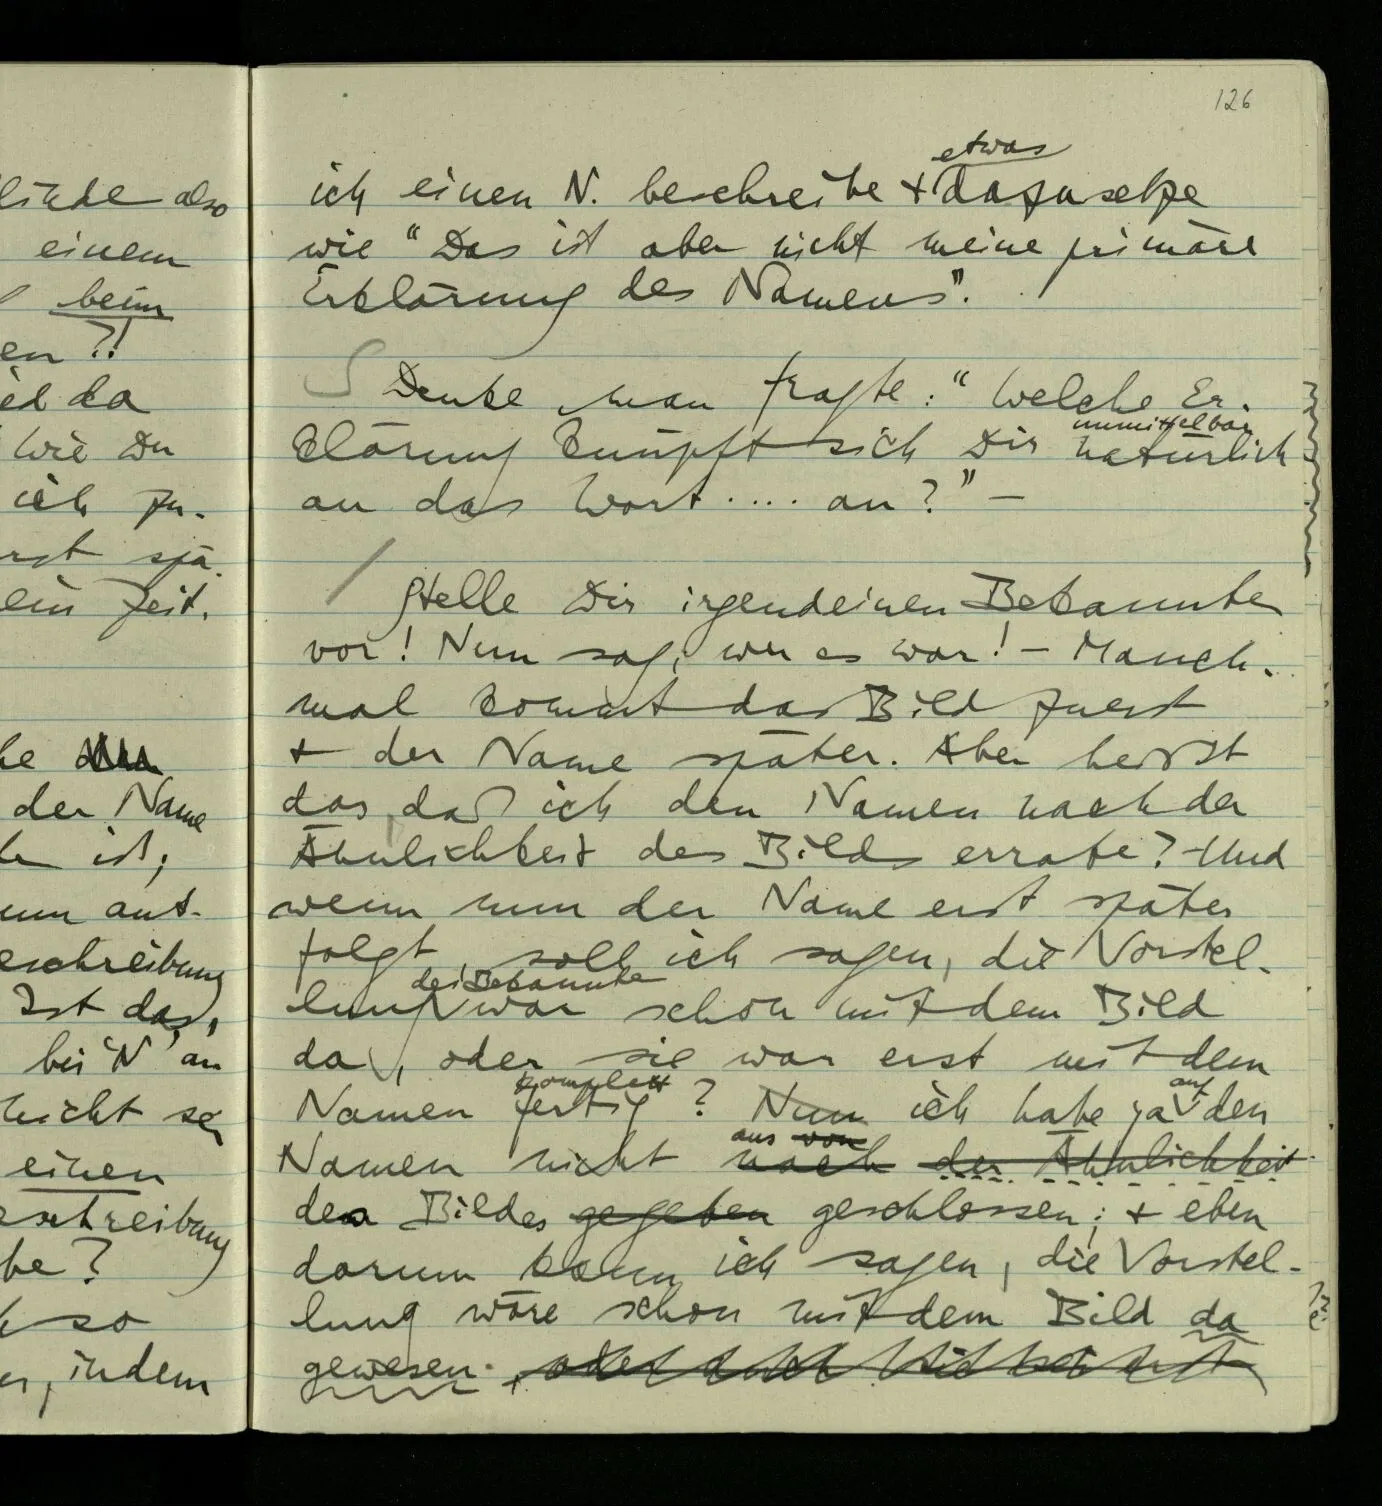 126
lichde also
einem
beim
en ?!
ied da
wie Du
ich zu-
rst spä-
ein Zeit.
he
der Name
ist;
nun ant-
eschreibung
Ist das,
bei 'N' an
nicht so
einen
schreibung
be?
so
er, indem
etwas
ich einen N. beschreibe + dazusetze
wie "Das ist aber nicht meine primäre
Erklärung des Namens".
S Denke man fragte: "Welche Er-
unmittelbar
klärung knüpft sich Dir natürlich
an das Wort .... an?" –
/ Stelle Dir irgendeinen Bekannten
vor! Nun sag, wer es war! – Manch-
mal kommt das Bild zuerst
+ der Name später. Aber heißt
das, daß ich den Namen nach der
Ähnlichkeit des Bilds errate? – Und
wenn nun der Name erst später
folgt, soll ich sagen, die Vorstel-
des Bekannten
lung war schon mit dem Bild
da, oder sie war erst mit dem
komplett
Namen fertig? Nun ich habe ja den
auf
aus von
Namen nicht nach der Ähnlichkeit
des Bildes gegeben geschlossen; + eben
darum kann ich sagen, die Vorstel-
lung wäre schon mit dem Bild da
gewesen.